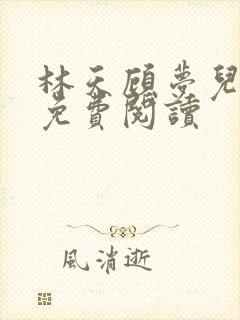 林天顾夢兒
免費閱讀
風消逝